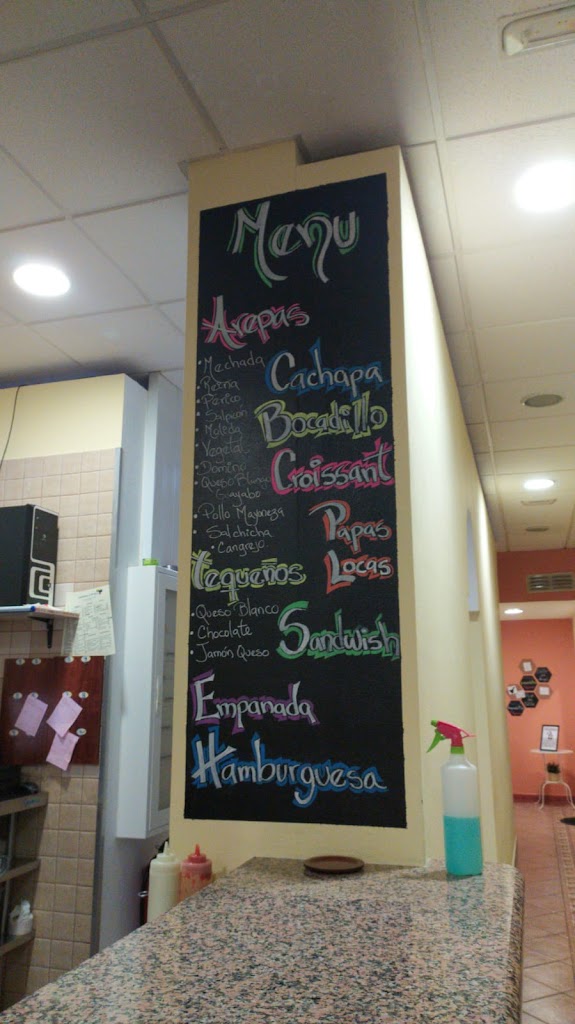 Menu
Arepas
• Mechada
• Reina
• Perico
• Salpicón
• Molida
Vegetal
• Domino
• Queso Blanco
Guayabo
• Pollo Mayoneza
• Salchicha
• Cangrejo
Tequeños
• Queso Blanco
• Chocolate
• Jamón Queso
Empanada
Hamburguesa
Cachapa
Bocadillo
Croissant
Papas
Locas
Sandwish